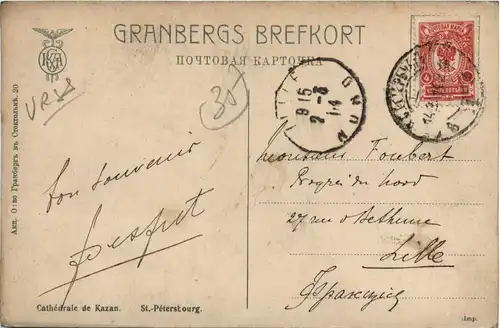 GRANBERGS BREFKORT
ПОЧТОВАЯ КАРТОЧКА
URSS
30
LILLE
9 15
2 - 8
14
NORD
Bon souvenir
Monsieur Foubert
Progrès du Nord
27 rue de Béthune
Lille
Франция
Акц. О-во Гранбергъ въ Стокгольмѣ. 20
Cathédrale de Kazan. St.-Pétersbourg.
Imp.